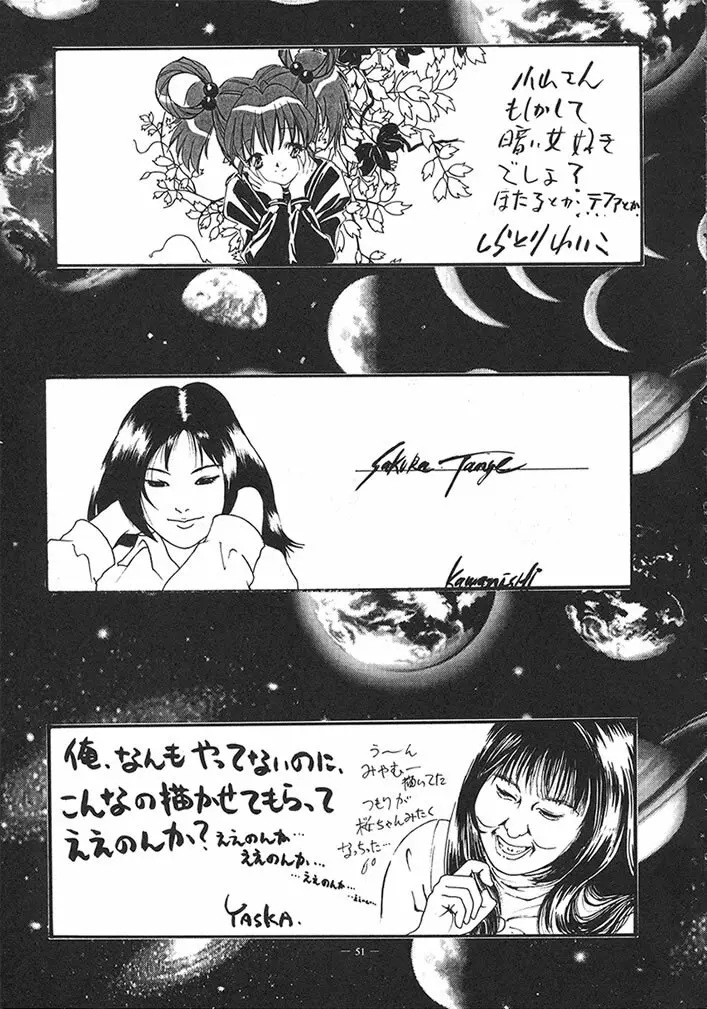 小山さん
もしかして
暗い女好き
でしょ?
ほたるとか、テファとか
しらとりれいこ
Sakura Tange
Kawanishi
俺、なんもやってないのに、
こんなの描かせてもらって
ええのんか?ええのんか…
ええのんか…
…ええのんか…
YASKA.
う〜ん
みやむー
描いてた
つもりが
桜ちゃんみたく
なっちった…
— 51 —